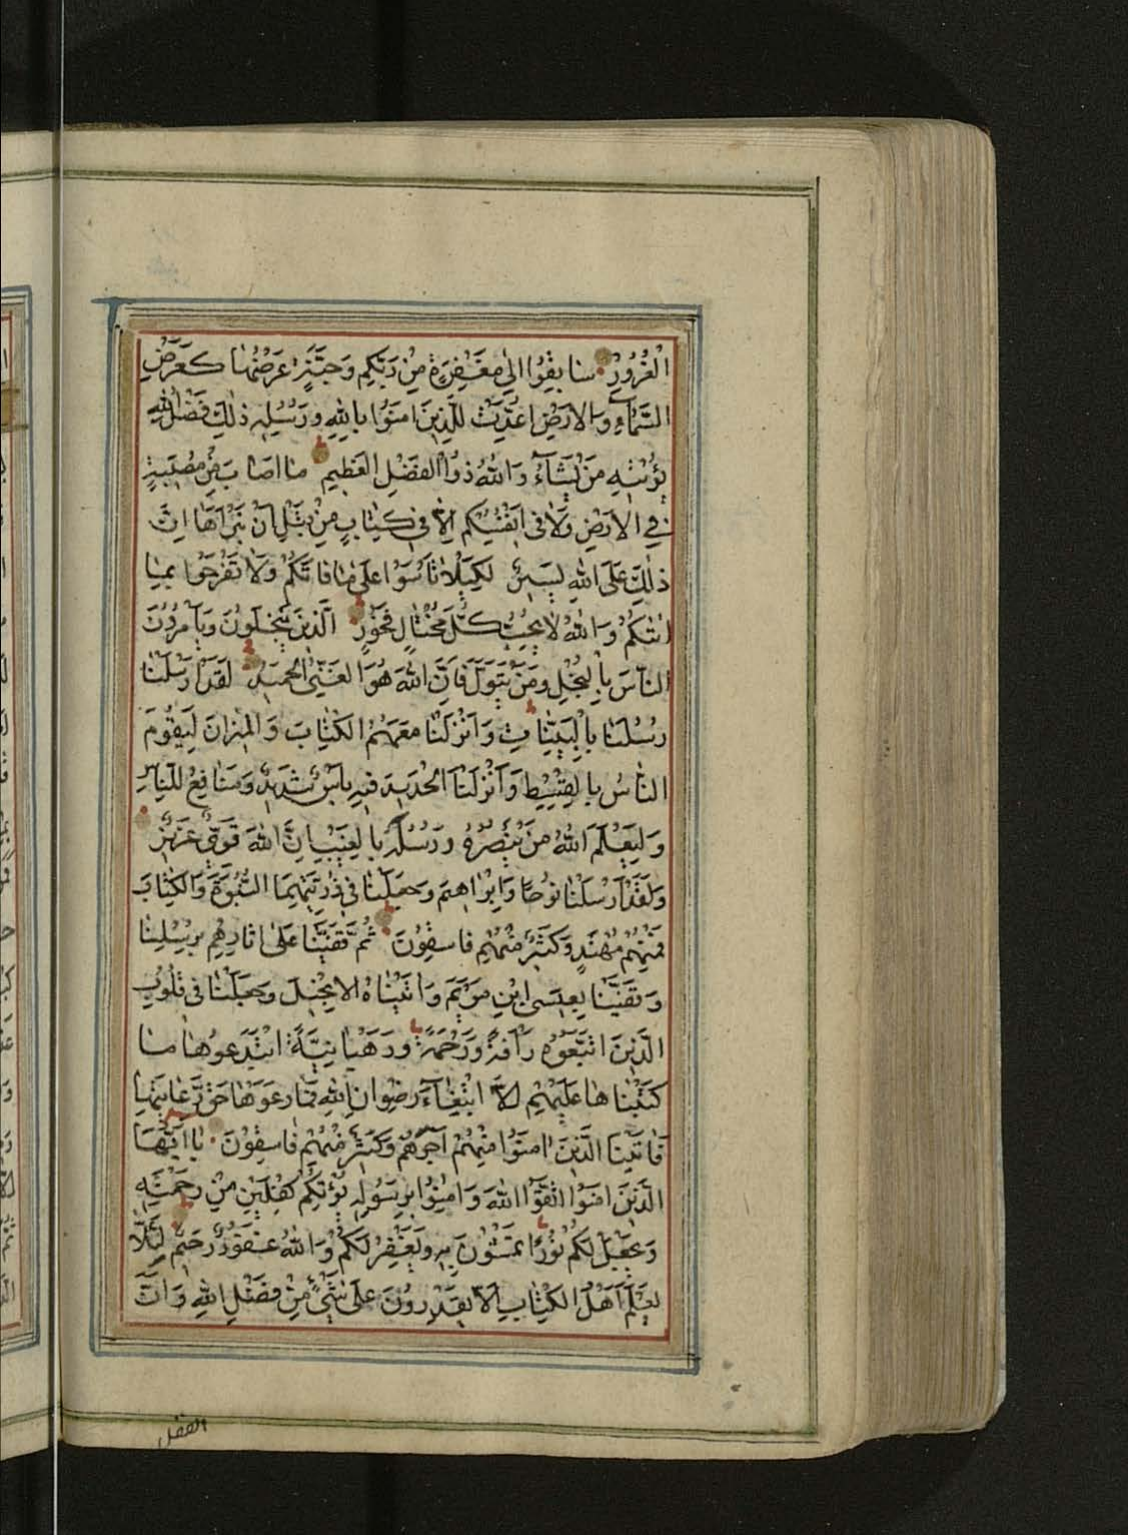 الْغُرُورِ سَابِقُوا اِلىٰ مَغْفِرَةٍ مِنْ رَبِّكُمْ وَجَنَّةٍ عَرْضُهَا كَعَرْضِ
السَّمَاءِ وَالْاَرْضِ اُعِدَّتْ لِلَّذِينَ اٰمَنُوا بِاللّٰهِ وَرُسُلِهِ ذٰلِكَ فَضْلُ اللّٰهِ
يُؤْتِيهِ مَنْ يَشَاءُ وَاللّٰهُ ذُوا الْفَضْلِ الْعَظِيمِ مَا اَصَابَ مِنْ مُصِيبَةٍ
فِي الْاَرْضِ وَلَا فِي اَنْفُسِكُمْ اِلَّا فِي كِتَابٍ مِنْ قَبْلِ اَنْ نَبْرَاَهَا اِنَّ
ذٰلِكَ عَلَى اللّٰهِ يَسِيرٌ لِكَيْلَا تَاْسَوْا عَلىٰ مَا فَاتَكُمْ وَلَا تَفْرَحُوا بِمَا
اٰتٰكُمْ وَاللّٰهُ لَا يُحِبُّ كُلَّ مُخْتَالٍ فَخُورٍ الَّذِينَ يَبْخَلُونَ وَيَاْمُرُونَ
النَّاسَ بِالْبُخْلِ وَمَنْ يَتَوَلَّ فَاِنَّ اللّٰهَ هُوَ الْغَنِيُّ الْحَمِيدُ لَقَدْ اَرْسَلْنَا
رُسُلَنَا بِالْبَيِّنَاتِ وَاَنْزَلْنَا مَعَهُمُ الْكِتَابَ وَالْمِيزَانَ لِيَقُومَ
النَّاسُ بِالْقِسْطِ وَاَنْزَلْنَا الْحَدِيدَ فِيهِ بَاْسٌ شَدِيدٌ وَمَنَافِعُ لِلنَّاسِ
وَلِيَعْلَمَ اللّٰهُ مَنْ يَنْصُرُهُ وَرُسُلَهُ بِالْغَيْبِ اِنَّ اللّٰهَ قَوِيٌّ عَزِيزٌ
وَلَقَدْ اَرْسَلْنَا نُوحًا وَاِبْرَاهِيمَ وَجَعَلْنَا فِي ذُرِّيَّتِهِمَا النُّبُوَّةَ وَالْكِتَابَ
فَمِنْهُمْ مُهْتَدٍ وَكَثِيرٌ مِنْهُمْ فَاسِقُونَ ثُمَّ قَفَّيْنَا عَلىٰ اٰثَارِهِمْ بِرُسُلِنَا
وَقَفَّيْنَا بِعِيسَى ابْنِ مَرْيَمَ وَاٰتَيْنَاهُ الْاِنْجِيلَ وَجَعَلْنَا فِي قُلُوبِ
الَّذِينَ اتَّبَعُوهُ رَاْفَةً وَرَحْمَةً وَرَهْبَانِيَّةً ابْتَدَعُوهَا مَا
كَتَبْنَاهَا عَلَيْهِمْ اِلَّا ابْتِغَاءَ رِضْوَانِ اللّٰهِ فَمَا رَعَوْهَا حَقَّ رِعَايَتِهَا
فَاٰتَيْنَا الَّذِينَ اٰمَنُوا مِنْهُمْ اَجْرَهُمْ وَكَثِيرٌ مِنْهُمْ فَاسِقُونَ يَا اَيُّهَا
الَّذِينَ اٰمَنُوا اتَّقُوا اللّٰهَ وَاٰمِنُوا بِرَسُولِهِ يُؤْتِكُمْ كِفْلَيْنِ مِنْ رَحْمَتِهِ
وَيَجْعَلْ لَكُمْ نُورًا تَمْشُونَ بِهِ وَيَغْفِرْ لَكُمْ وَاللّٰهُ غَفُورٌ رَحِيمٌ لِئَلَّا
يَعْلَمَ اَهْلُ الْكِتَابِ اَلَّا يَقْدِرُونَ عَلىٰ شَيْءٍ مِنْ فَضْلِ اللّٰهِ وَاَنَّ
الفضل